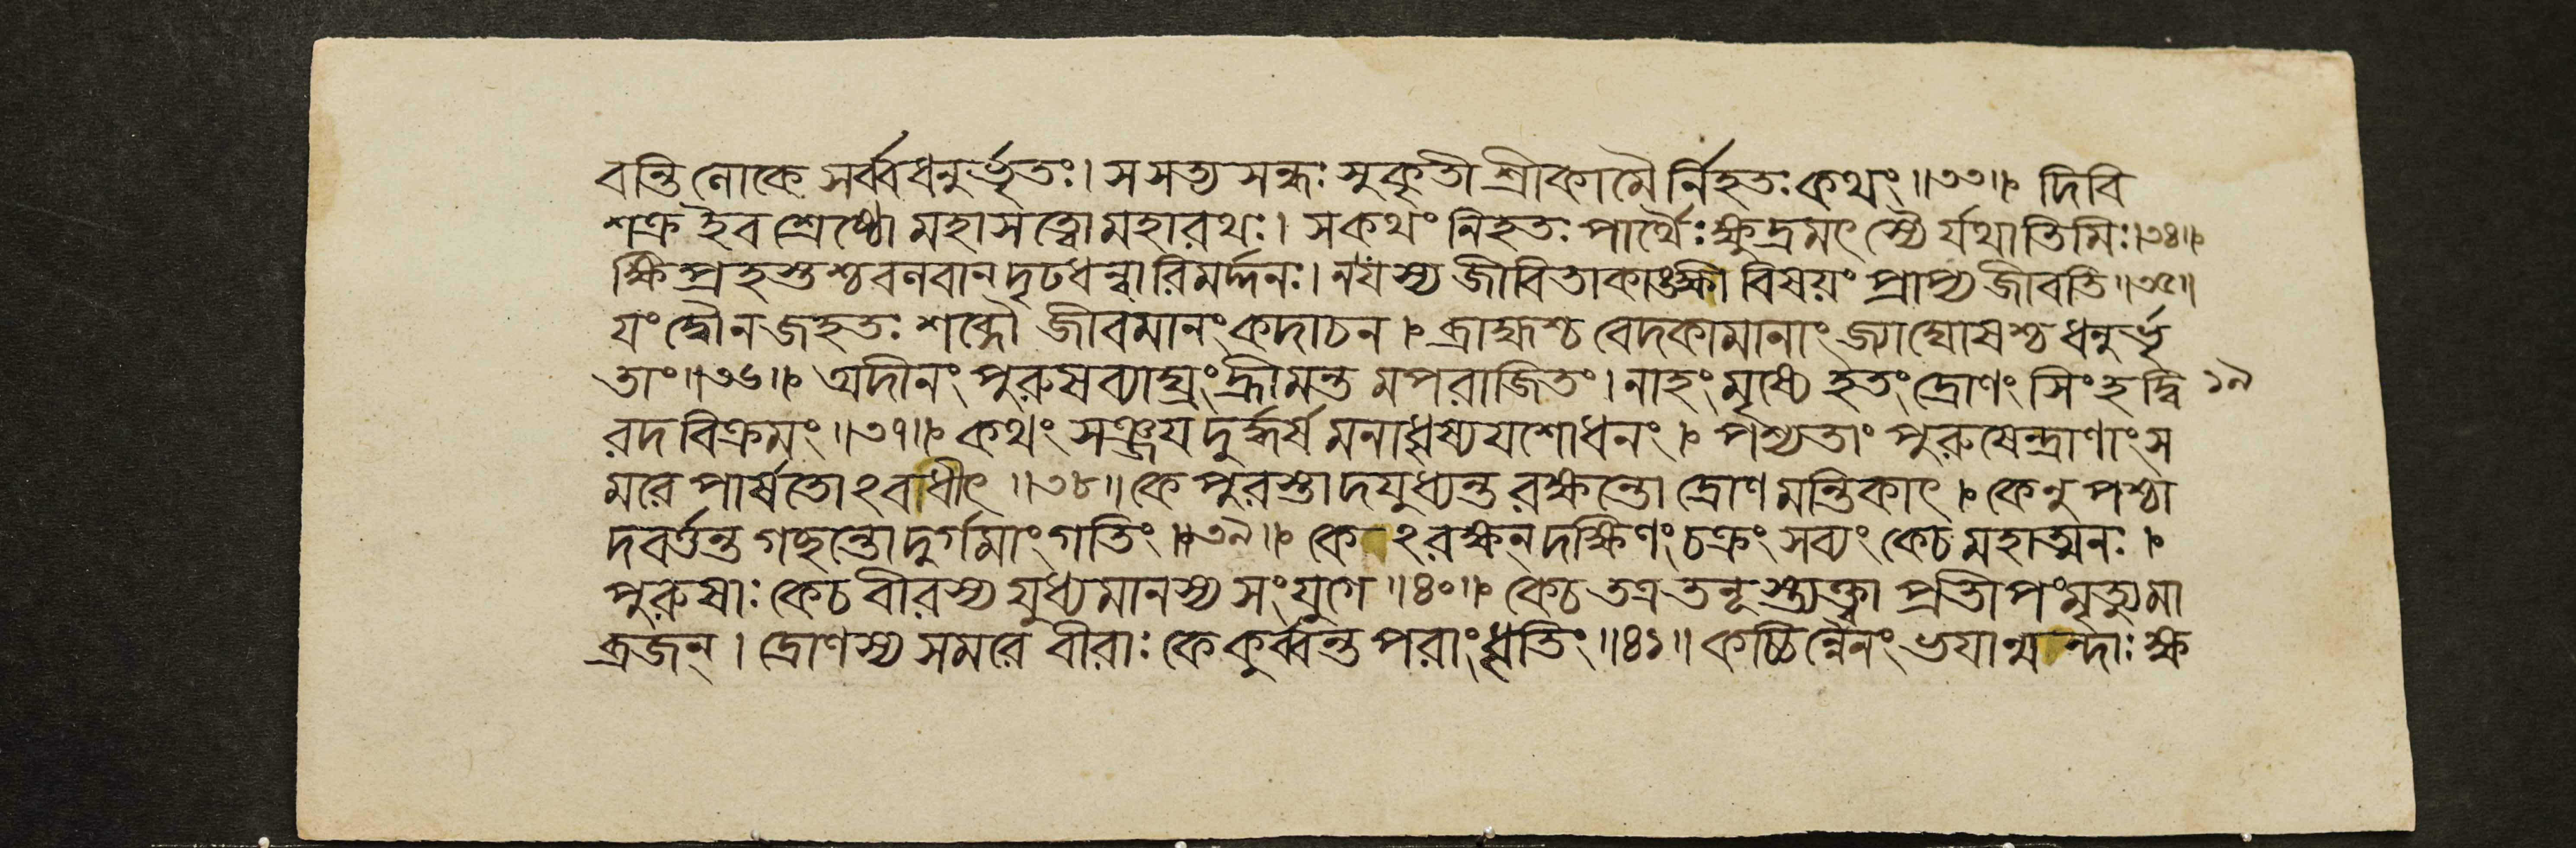 বন্তি লোকে সর্ব্বধনুর্ভৃতঃ। স সত্যসন্ধঃ সুকৃতী শ্রীকামৈর্নিহতঃ কথং॥৩৩॥ দিবি
শক্র ইব শ্রেষ্ঠো মহাসত্ত্বো মহারথঃ। স কথং নিহতঃ পার্থৈঃ ক্ষুদ্রমৎস্যৈর্যথা তিমিঃ॥৩৪॥
ক্ষিপ্রহস্তশ্চ বলবান দৃঢধন্বারিমর্দ্দনঃ। ন যস্য জীবিতাকাঙ্ক্ষী বিষয়ং প্রাপ্য জীবতি॥৩৫॥
যং দ্বৌ ন জহতঃ শব্দৌ জীবমানং কদাচন। ব্রাহ্মশ্চ বেদকামানাং জ্যাঘোষশ্চ ধনুর্ভৃ
তাং॥৩৬॥ অদীনং পুরুষব্যাঘ্রং হ্রীমন্তমপরাজিতং। নাহং মৃষ্যে হতং দ্রোণং সিংহদ্বি ১৯
রদবিক্রমং॥৩৭॥ কথং সঞ্জয় দুর্দ্ধর্ষমনাধৃষ্যযশোধনং। পশ্যতাং পুরুষেন্দ্রাণাং স
মরে পার্ষতোঽবধীৎ॥৩৮॥ কে পুরস্তাদযুধ্যন্ত রক্ষন্তো দ্রোণমন্তিকাৎ। কে নু পশ্চা
দবর্ত্তন্ত গচ্ছন্তো দুর্গমাং গতিং॥৩৯॥ কেঽরক্ষন্ দক্ষিণং চক্রং সব্যং কে চ মহাত্মনঃ।
পুরুষাঃ কে চ বীরস্য যুধ্যমানস্য সংযুগে॥৪০॥ কে চ তত্র তনূস্ত্যক্ত্বা প্রতীপং মৃত্যুমা
ব্রজন্। দ্রোণস্য সমরে বীরাঃ কে কুর্ব্বন্ত পরাং ধৃতিং॥৪১॥ কচ্চিন্নৈনং ভয়ান্মন্দাঃ ক্ষ